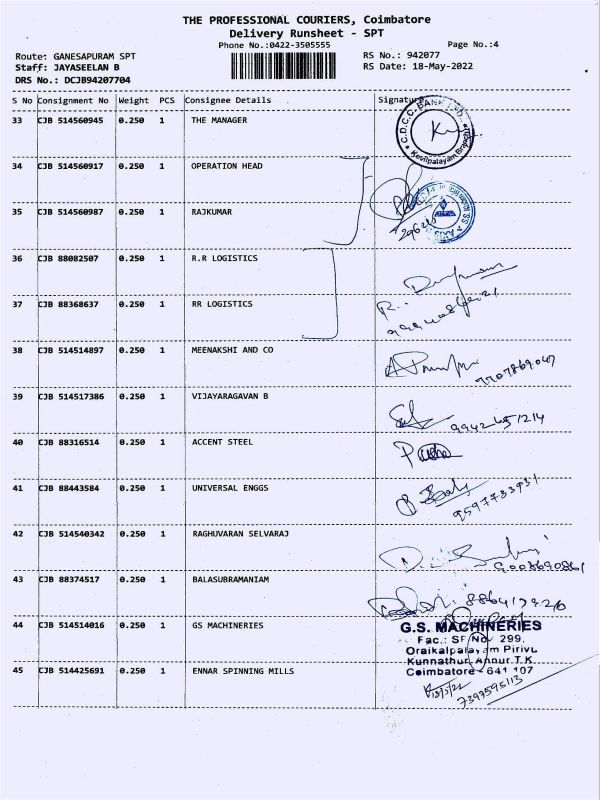 THE PROFESSIONAL COURIERS, Coimbatore
Delivery Runsheet - SPT
Phone No.:0422-3505555
Page No.:4
Route: GANESAPURAM SPT
RS No.: 942077
Staff: JAYASEELAN B
RS Date: 18-May-2022
DRS No.: DCJB94207704
S No Consignment No Weight PCS Consignee Details Signature
33 CJB 514560945 0.250 1 THE MANAGER
C.D.C.C. BANK LTD.
Kovilpalayam Branch
34 CJB 514560917 0.250 1 OPERATION HEAD
35 CJB 514560987 0.250 1 RAJKUMAR
36 CJB 88082507 0.250 1 R.R LOGISTICS
37 CJB 88368637 0.250 1 RR LOGISTICS
38 CJB 514514897 0.250 1 MEENAKSHI AND CO
7707869047
39 CJB 514517386 0.250 1 VIJAYARAGAVAN B
9942651214
40 CJB 88316514 0.250 1 ACCENT STEEL
41 CJB 88443584 0.250 1 UNIVERSAL ENGGS
9597733931
42 CJB 514540342 0.250 1 RAGHUVARAN SELVARAJ
9003690861
43 CJB 88374517 0.250 1 BALASUBRAMANIAM
44 CJB 514514016 0.250 1 GS MACHINERIES
G.S. MACHINERIES
Fac.: SF No. 299,
Oraikalpalayam Pirivu
Kunnathur, Annur T.K.
Coimbatore - 641 107
45 CJB 514425691 0.250 1 ENNAR SPINNING MILLS
7397595113